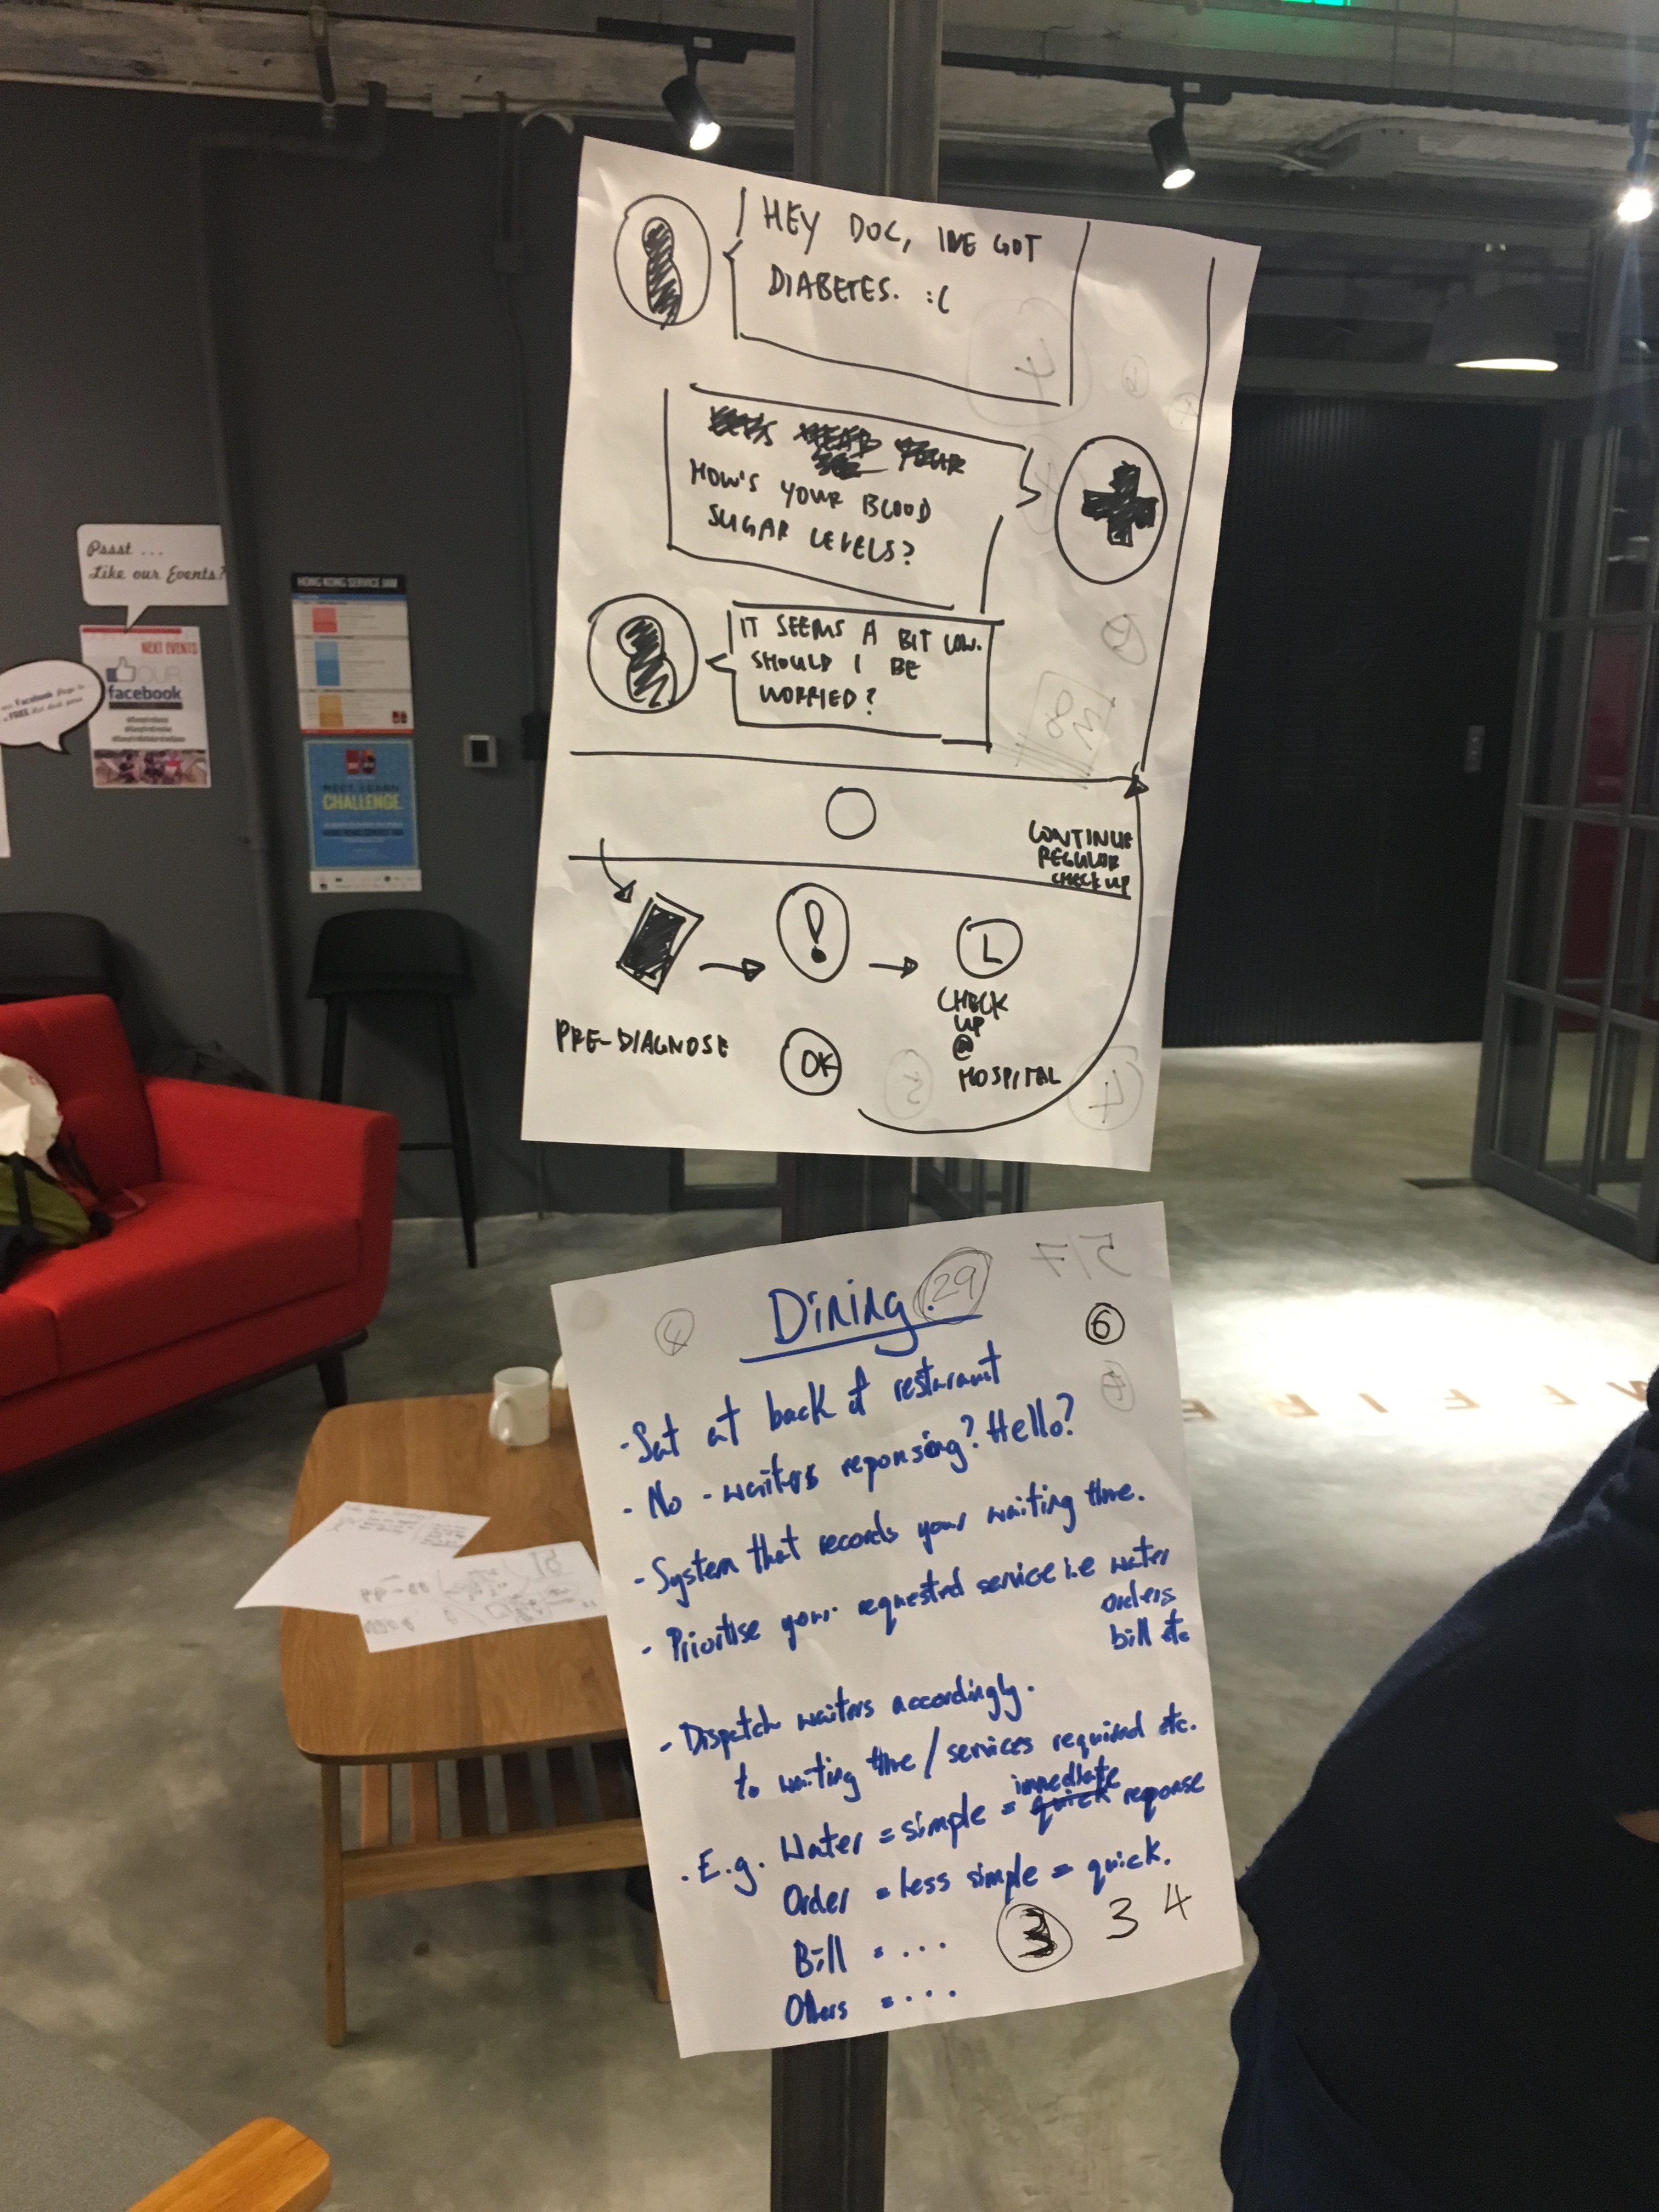 HEY DOC, IVE GOT
DIABETES. :(
HOW'S YOUR BLOOD
SUGAR LEVELS?
IT SEEMS A BIT LOW.
SHOULD I BE
WORRIED?
CONTINUE
REGULAR
CHECK UP
!
L
CHECK
UP
@
HOSPITAL
PRE-DIAGNOSE
OK
Dining.
29
5/7
4
6
- Sat at back of restaraunt
- No - waiters reponsing? Hello?
- System that records your waiting time.
- Prioritise your requested service i.e water
orders
bill etc
- Dispatch waiters accordingly.
to waiting time / services required etc.
immediate
. E.g. Water = simple = quick reponse
Order = less simple = quick.
Bill = ...
Others = ...
3 3 4
Pssst ...
Like our Events?
NEXT EVENTS
OUR
facebook
HONG KONG SERVICE JAM
MEET, LEARN
CHALLENGE.
HONG KONG SERVICE JAM